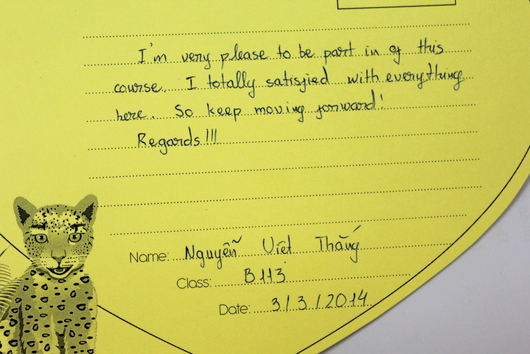 I'm very please to be part in of this
course. I totally satisfied with everything
here. So keep moving forward!
Regards!!!
Name: Nguyễn Việt Thắng
Class: B113
Date: 3/3/2014